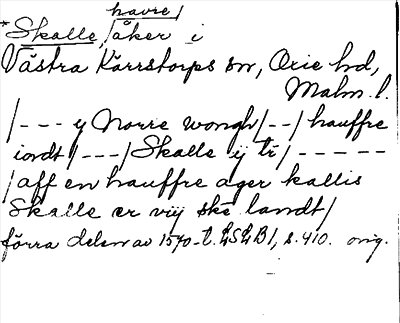 havre/
*Skalle, /åker i
Västra Kärrstorps sn, Oxie hd,
Malm. l.
/--- y Norre wongh/--/hauffre
iordt/---/Skalle ij tr/-----
/aff en hauffre ager kallis
Skalle er vij ske landt/
förra delen av 1570-t. LSLB1, s. 410. orig.